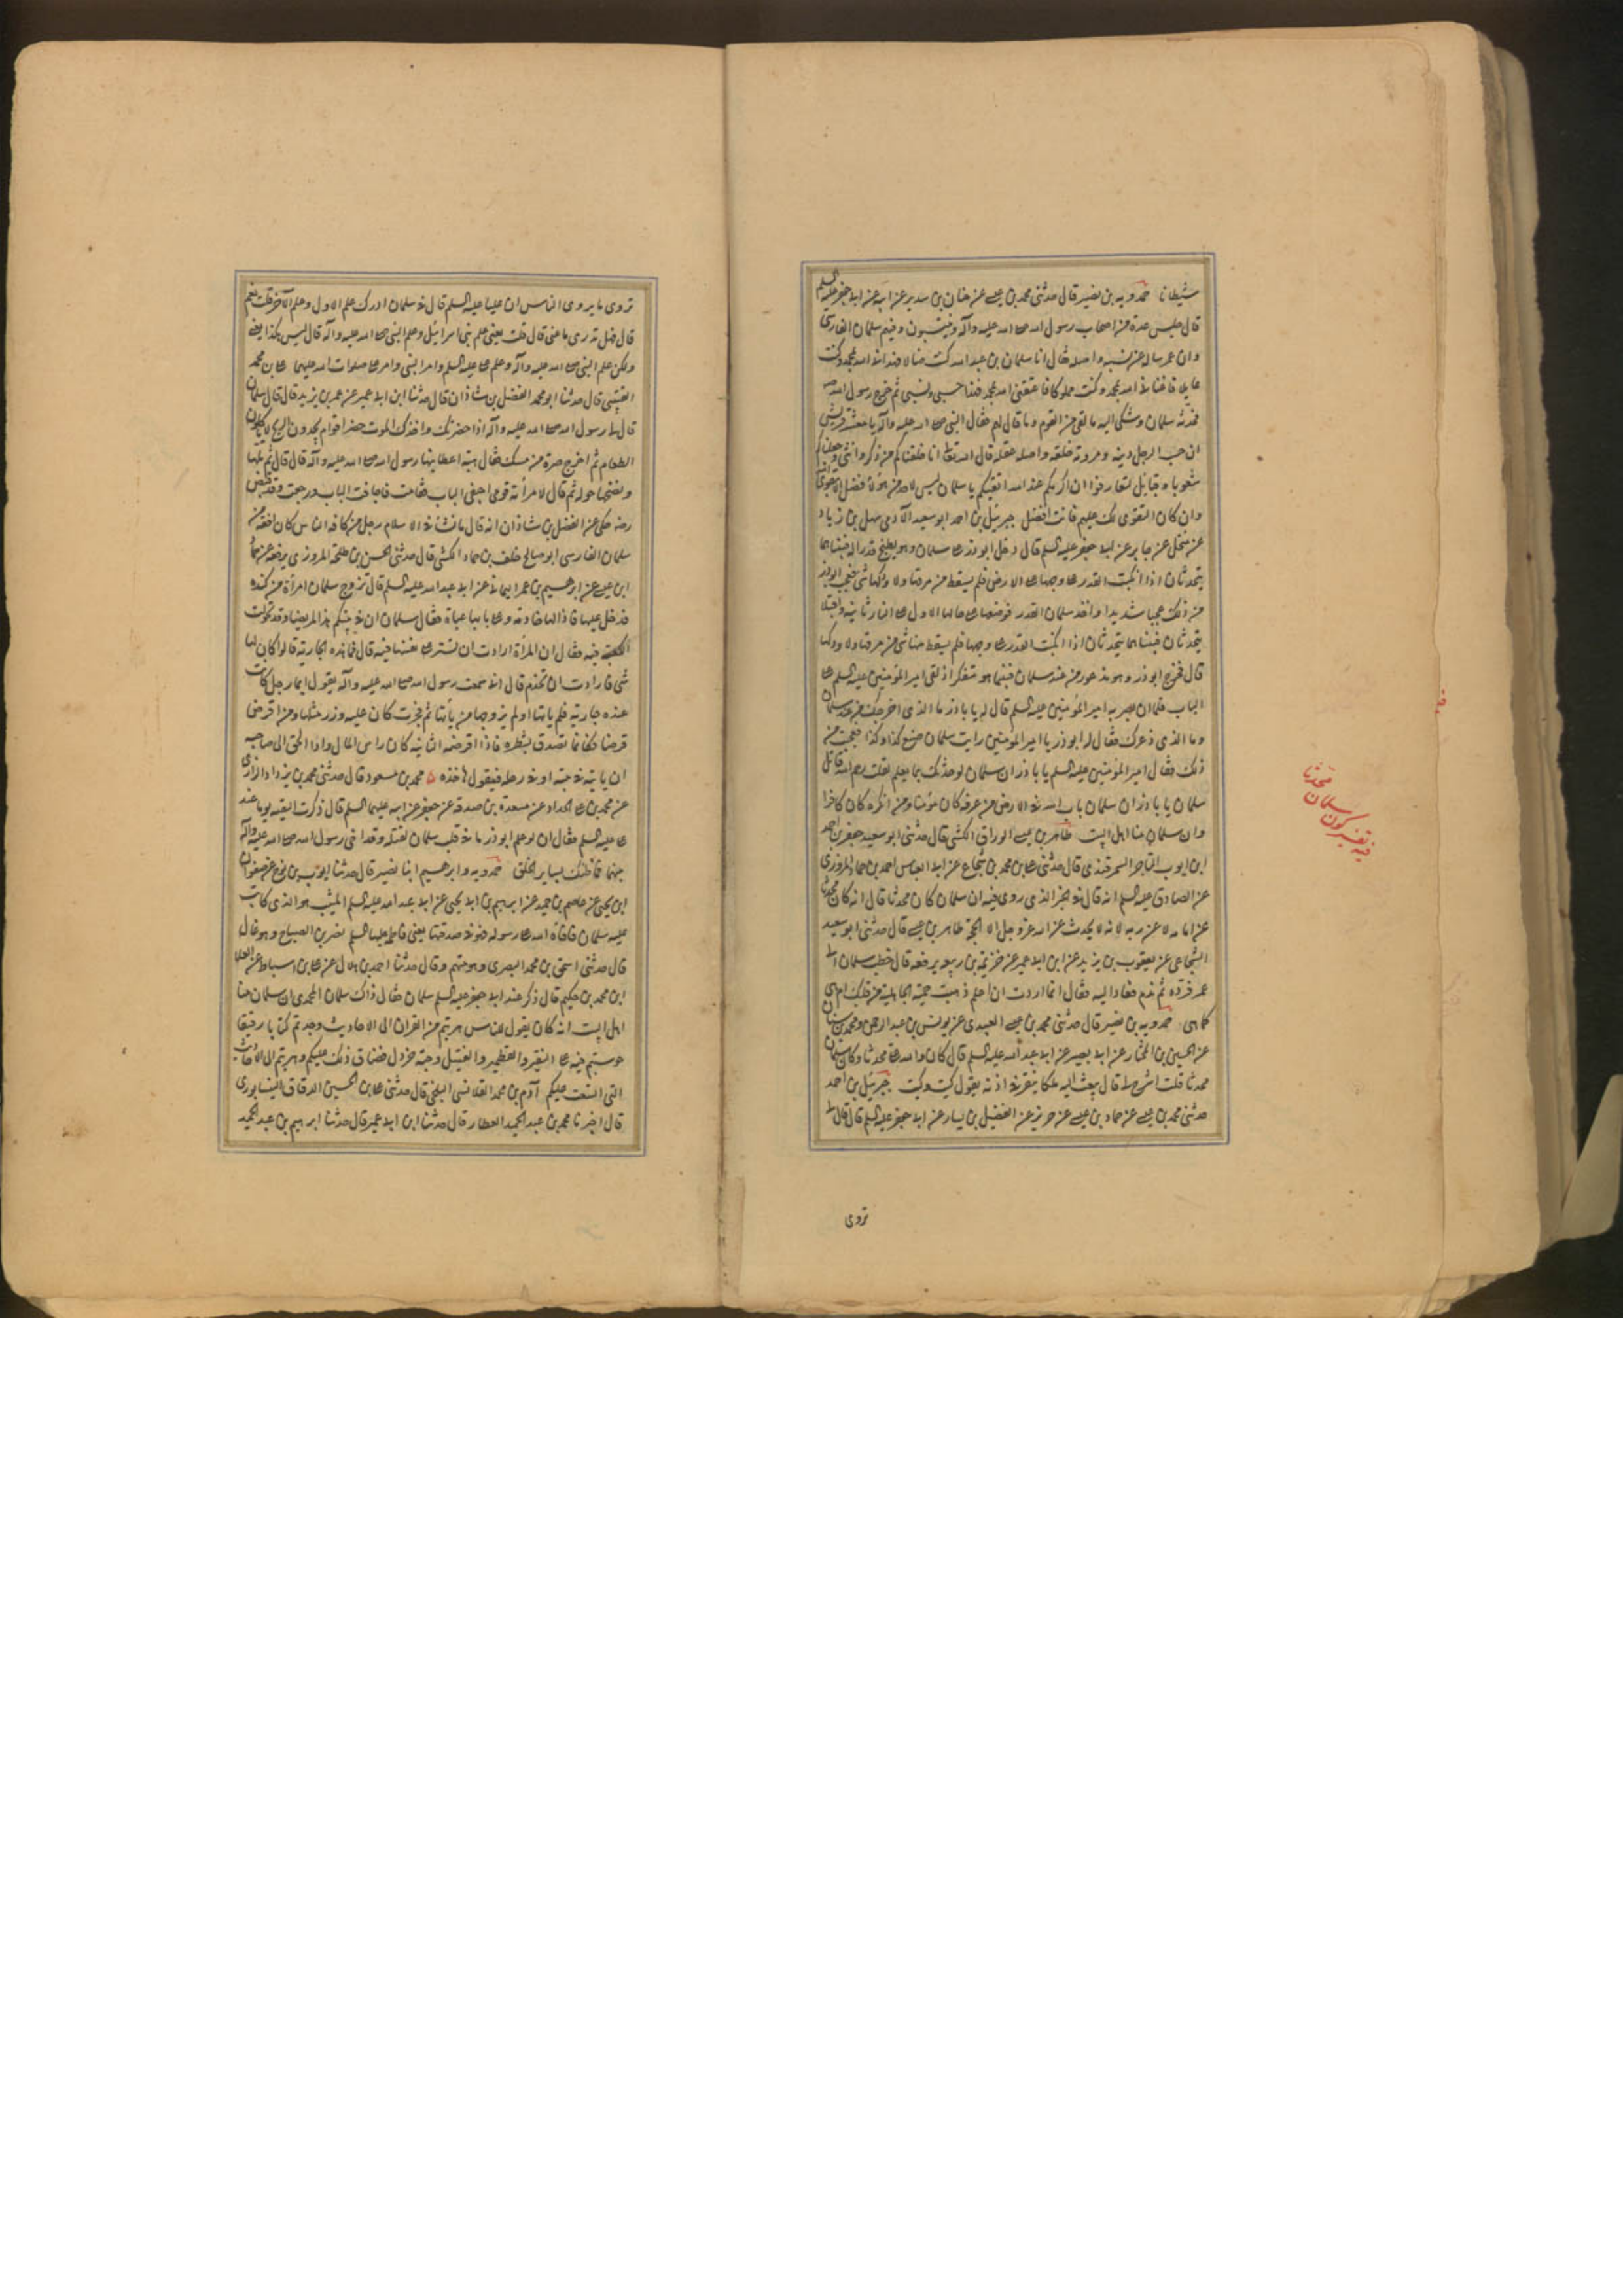 شيطانا حمدويه بن نصير قال حدثنى محمد بن عيسى عن حنان بن سدير عن ابيه عن ابى جعفر عليه السلم
قال جلس عدة من اصحاب رسول الله صلى الله عليه وآله ينتسبون وفيهم سلمان الفارسى
وان عمر ساله عن نسبه واصله فقال انا سلمان بن عبد الله كنت ضالا فهدانى الله بمحمد وكنت
عايلا فاغنانى الله بمحمد وكنت مملوكا فاعتقنى الله بمحمد فهذا حسبى ونسبى ثم خرج رسول الله صه
فحدثه سلمان وشكى اليه ما لقى من القوم وما قال لهم فقال النبى صلى الله عليه وآله يا معشر قريش
ان حسب الرجل دينه ومروته خلقه واصله عقله قال الله تعالى انا خلقناكم من ذكر وانثى وجعلناكم
شعوبا وقبايل لتعارفوا ان اكرمكم عند الله اتقيكم يا سلمان ليس لاحد من هولاء فضل الا بتقوى الله
وان كان التقوى لك عليهم فانت افضل جبرئيل بن احمد ابو سعيد الآدمى سهل بن زياد
عن منخل عن جابر عن ابى جعفر عليه السلم قال دخل ابو ذر على سلمان وهو يطبخ قدرا له فبيناهما
يتحدثان اذا انكبت القدر على وجهها على الارض فلم يسقط من مرقها ولا ودكها شى فعجب ابو ذر
من ذلك عجبا شديدا واخذ سلمان القدر فوضعها على حالها الاول على النار ثانية واقبلا
يتحدثان فبيناهما يتحدثان اذا انكبت القدر على وجهها فلم يسقط منها شى من مرقها ولا ودكها
قال فخرج ابو ذر وهو مذعور من عند سلمان فبينما هو متفكر اذ لقى امير المؤمنين عليه السلم على
الباب فلما ان بصر به امير المؤمنين عليه السلم قال له يا باذر ما الذى اخرجك من عند سلمان
وما الذى ذعرك فقال له ابو ذر يا امير المؤمنين رايت سلمان صنع كذا وكذا فعجبت من
ذلك فقال امير المؤمنين عليه السلم يا باذر ان سلمان لو حدثك بما يعلم لقلت رحم الله قاتل
سلمان يا باذر ان سلمان باب الله فى الارض من عرفه كان مؤمنا ومن انكره كان كافرا
وان سلمان منا اهل البيت طاهر بن عيسى الوراق الكشى قال حدثنى ابو سعيد جعفر بن احمد
ابن ايوب التاجر السمرقندى قال حدثنى على بن محمد بن شجاع عن ابى العباس احمد بن حماد المروزى
عن الصادق عليه السلم انه قال فى الخبر الذى روى فيه ان سلمان كان محدثا قال انه كان محدثا
عن امامه لا عن ربه لانه لا يحدث عن الله عز وجل الا الحجة طاهر بن عيسى قال حدثنى ابو سعيد
الشجاعى عن يعقوب بن يزيد عن ابن ابى عمير عن خزيمة بن ربيعة يرفعه قال خطب سلمان الى
عمر فرده ثم ندم فعاد اليه فقال انما اردت ان اعلم ذهبت حمية الجاهلية من قلبك ام هى
كما هى حمدويه بن نصير قال حدثنى محمد بن عيسى العبيدى عن يونس بن عبد الرحمن ومحمد بن سنان
عن الحسين بن المختار عن ابى بصير عن ابى عبد الله عليه السلم قال كان والله على محدثا وكان سلمان
محدثا قلت اشرح لى قال يبعث اليه ملكا ينقر فى اذنه يقول كيت وكيت جبرئيل بن احمد
حدثنى محمد بن عيسى عن حماد بن عيسى عن حريز عن الفضيل بن يسار عن ابى جعفر عليه السلم قال قال لى
تروى
فيه تفسير كون سلمان محدثا
تروى ما يروى الناس ان عليا عليه السلم قال فى سلمان ادرك علم الاول وعلم الآخر قلت نعم
قال فهل تدرى ما عنى قال قلت يعنى علم بنى اسرائيل وعلم النبى صلى الله عليه وآله قال ليس هكذا يعنى
ولكن علم النبى صلى الله عليه وآله وعلم على عليه السلم وامر النبى وامر على صلوات الله عليهما على بن محمد
القتيبى قال حدثنا ابو محمد الفضل بن شاذان قال حدثنا ابن ابى عمير عن عمر بن يزيد قال قال سلمان
قال لى رسول الله صلى الله عليه وآله اذا حضرك واخذك الموت حضر اقوام يجدون الريح لا ياكلون
الطعام ثم اخرج صرة من مسك فقال هبة اعطانيها رسول الله صلى الله عليه وآله قال قال ثم بلها
ونضحها حوله ثم قال لامرأته قومى اجيفى الباب فقامت فاجافت الباب ورجعت وقد قبض
رضه حكى عن الفضل بن شاذان انه قال ما نشا فى الاسلام رجل من كافة الناس كان افقه من
سلمان الفارسى ابو صالح خلف بن حماد الكشى قال حدثنى الحسن بن طلحة المروزى يرفعه عن حماد
ابن عيسى عن ابرهيم بن عمر اليمانى عن ابى عبد الله عليه السلم قال تزوج سلمان امرأة من كنده
فدخل عليها فاذا لها خادمة وعلى بابها عباة فقال سلمان ان فى بيتكم هذا لمريضا او قد تحولت
الكعبة فيه فقال ان المرأة ارادت ان تستر على نفسها فيه قال فما هذه الجارية قالوا كان لها
شى فارادت ان تخدم قال انى سمعت رسول الله صلى الله عليه وآله يقول ايما رجل كانت
عنده جارية فلم ياتها او لم يزوجها من يأتيها ثم فجرت كان عليه وزر مثلها ومن اقرض
قرضا فكانما تصدق بشطره فاذا اقرضه الثانية كان راس المال واداء الحق الى صاحبه
ان ياتيه به فى بيته او فى رحله فيقول ها خذه محمد بن مسعود قال حدثنى محمد بن يزداد الرازى
عن محمد بن على الحداد عن مسعدة بن صدقة عن جعفر عن ابيه عليهما السلم قال ذكرت التقية يوما عند
على عليه السلم فقال ان لو علم ابو ذر ما فى قلب سلمان لقتله وقد اخى رسول الله صلى الله عليه وآله
بينهما فما ظنك بساير الخلق حمدويه وابرهيم ابنا نصير قال حدثنا ايوب بن نوح عن صفوان
ابن يحيى عن عاصم بن حميد عن ابرهيم بن ابى يحيى عن ابى عبد الله عليه السلم الميثب هو الذى كاتب
عليه سلمان فافاءه الله على رسوله فهو فى صدقتها يعنى فاطمة عليها السلم نصر بن الصباح وهو غال
قال حدثنى اسحق بن محمد البصرى وهو متهم وقال حدثنا احمد بن هلال عن على بن اسباط عن العلا
ابن محمد بن حكيم قال ذكر عند ابى جعفر عليه السلم سلمان فقال ذاك سلمان المحمدى ان سلمان منا
اهل البيت انه كان يقول للناس هربتم من القران الى الاحاديث وجدتم كتابا رقيقا
حوسبتم فيه على النقير والقطمير والفتيل وحبة خردل فضاق ذلك عليكم وهربتم الى الاحاديث
التى اتسعت عليكم آدم بن محمد القلانسى البلخى قال حدثنى على بن الحسين الدقاق النيسابورى
قال اخبرنا محمد بن عبد الحميد العطار قال حدثنا ابن ابى عمير قال حدثنا ابرهيم بن عبد الحميد